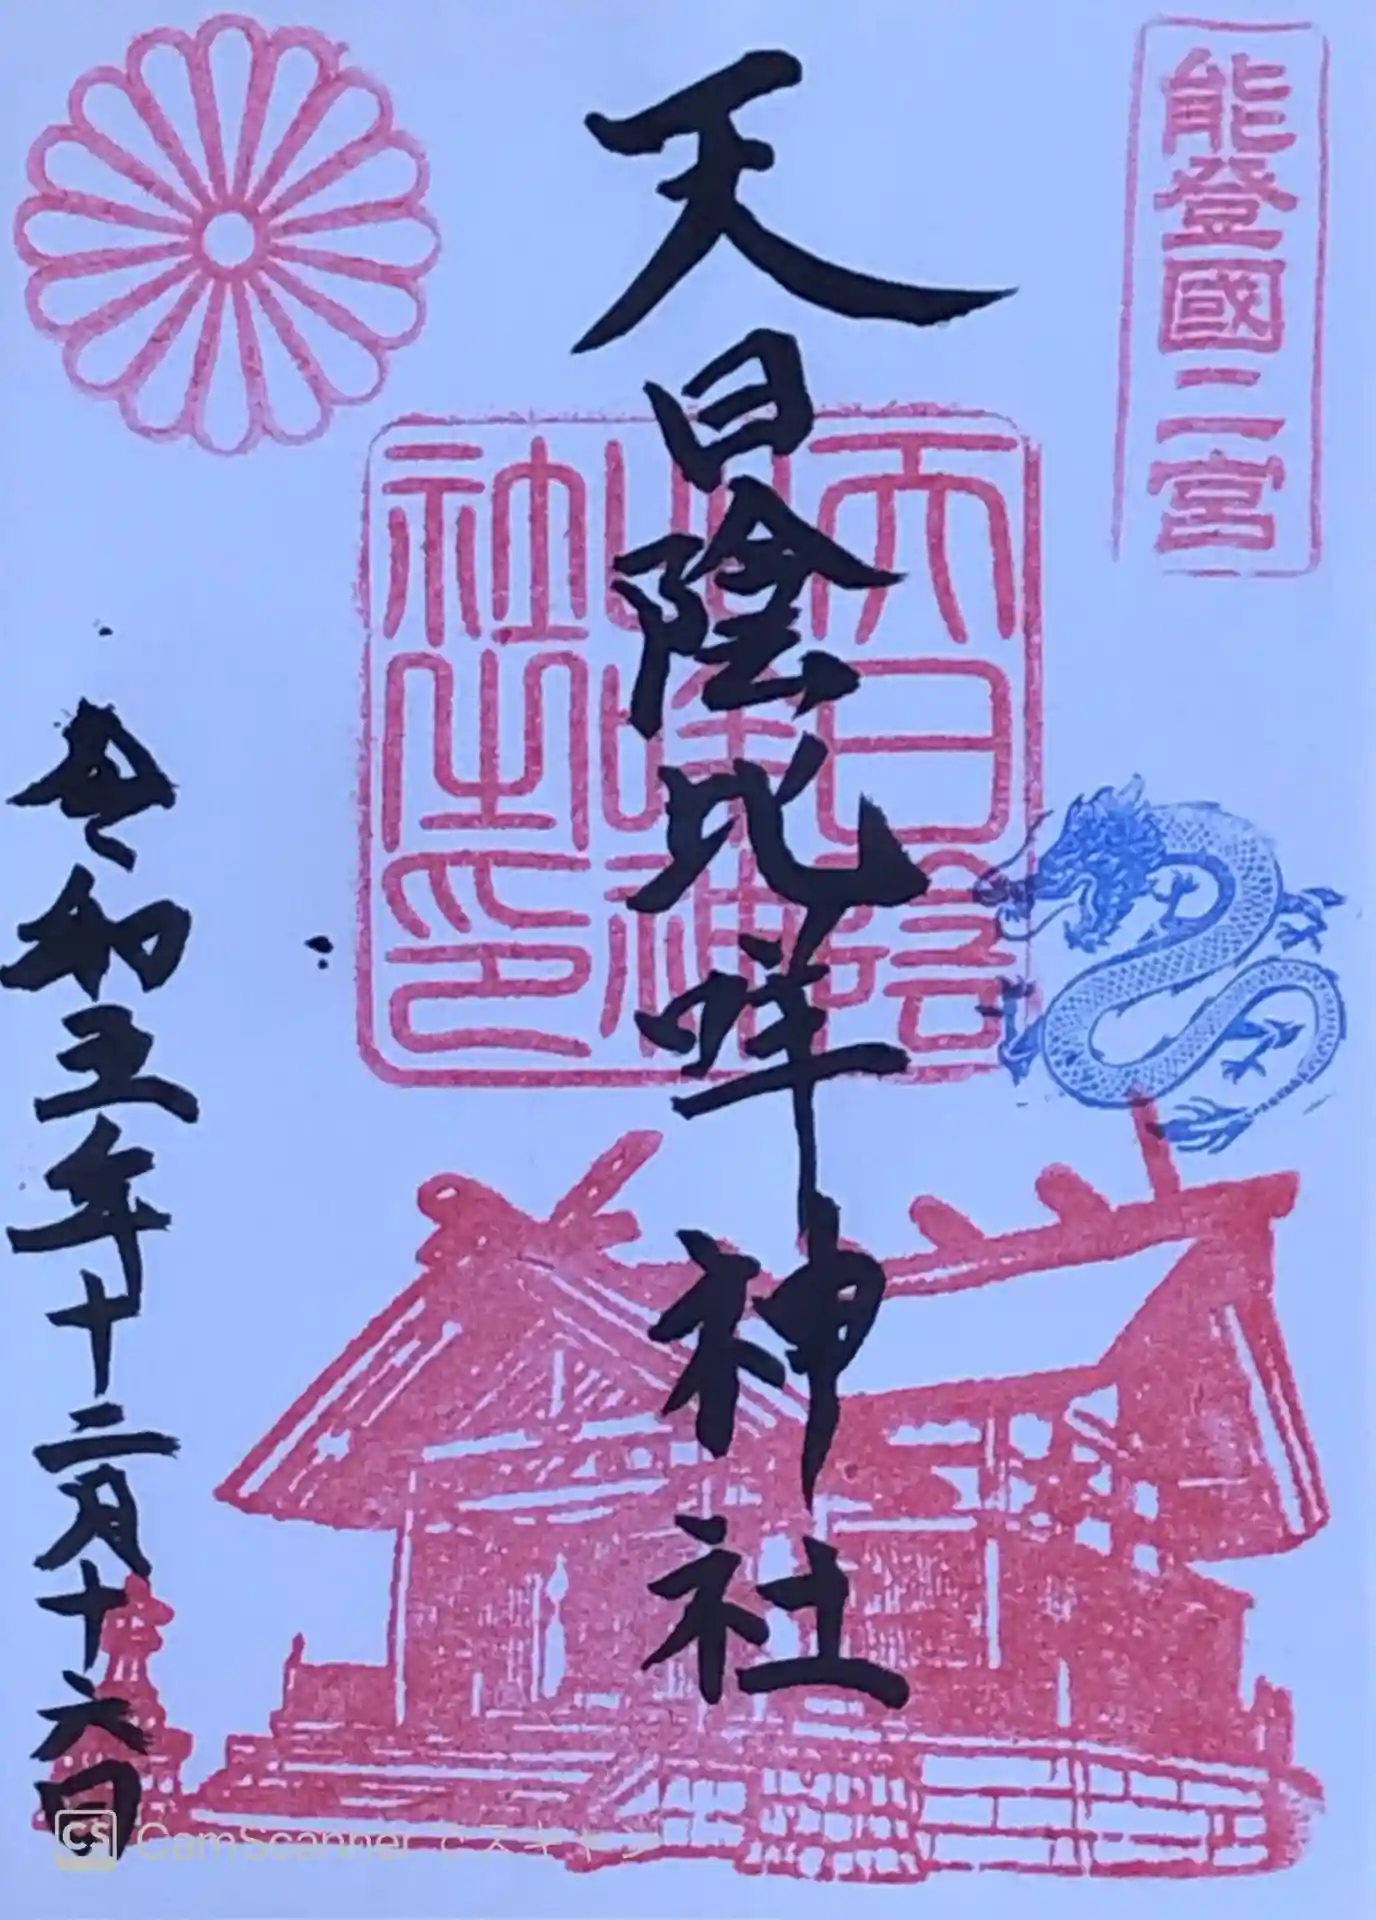 能登國二宮
天日陰比咩神社
天日陰比咩神社之印
令和五年十二月十六日
CS CamScannerでスキャン